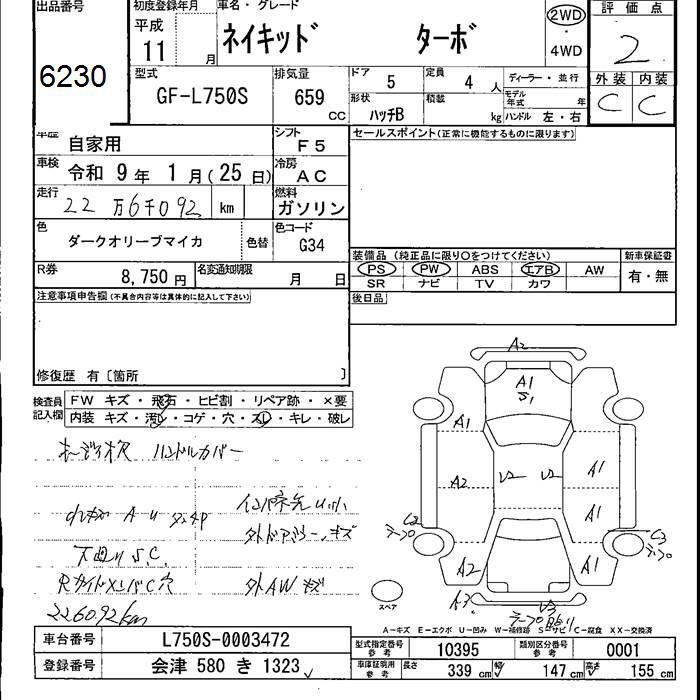 出品番号
6230
初度登録年月
平成
11 月
車名・グレード
ネイキッド ターボ
2WD
・
4WD
評価点
2
外装 内装
C C
型式
GF-L750S
排気量
659 CC
ドア 5
定員 4 人
形状 ハッチB
積載 kg
ディーラー・並行
モデル年式 年
ハンドル 左・右
車歴 自家用
シフト F5
車検 令和 9年 1月(25日)
冷房 AC
走行 22万6千092 km
燃料 ガソリン
色 ダークオリーブマイカ 色替
色コード G34
R券 8,750円
名変通知期限 月 日
セールスポイント(正常に機能するものに限ります)
装備品(純正品に限り〇をつけてください)
PS PW ABS エアB AW
SR ナビ TV カワ
新車保証書
有・無
後日品
注意事項申告欄(不具合内容等は具体的に記入して下さい)
修復歴 有[箇所 ]
検査員記入欄
FW キズ・飛石・ヒビ割・リペア跡・×要
内装 キズ・汚レ・コゲ・穴・スレ・キレ・破レ
ハンドルカバー
A U
外ドアミラーキズ
下廻りS.C.
RサイドメンバC穴
外AWキズ
226092km
A2
A1
S1
A1
A2
A2
A1
A1
A1
C2
テープ
C3
テープ
スペア
A-キズ E-エクボ U-凹み W-補修跡 S-サビ C-腐食 XX-交換済
車台番号 L750S-0003472
登録番号 会津 580 き 1323
型式指定番号 参考 10395
類別区分番号 参考 0001
車庫証明用 参考 長さ 339 cm 幅 147 cm 高さ 155 cm